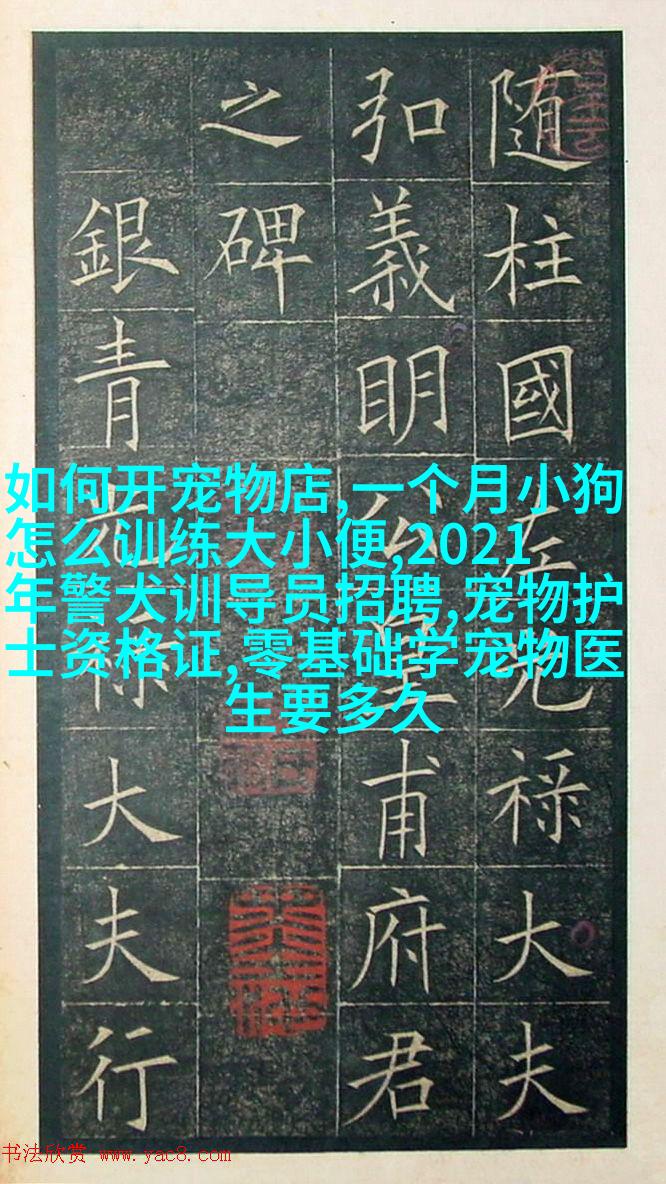 随柱國左光祿大夫
弘義眀公皇甫府君
之碑
銀青光祿大夫行
如何开宠物店,一个月小狗
怎么训练大小便,2021
年警犬训导员招聘,宠物护
士资格证,零基础学宠物医
生要多久
书法欣赏 www.yac8.com